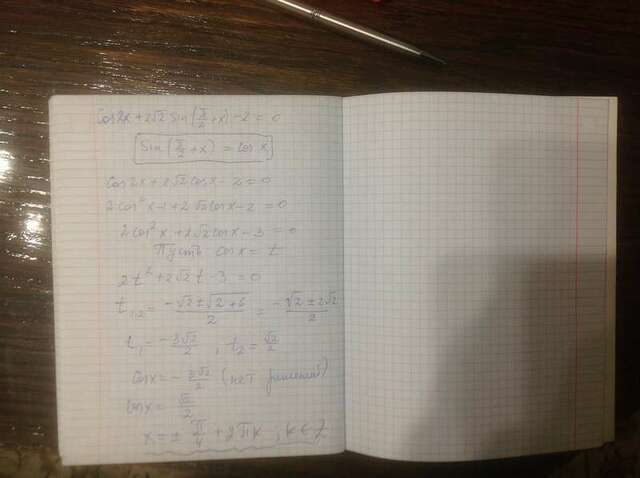 cos2x + 2√2 sin(π/2 + x) - 2 = 0
sin(π/2 + x) = cos x
cos2x + 2√2 cosx - 2 = 0
2cos²x - 1 + 2√2 cosx - 2 = 0
2cos²x + 2√2 cosx - 3 = 0
Пусть cosx = t
2t² + 2√2 t - 3 = 0
t₁,₂ = (-√2 ± √(2 + 6))/2 = (-√2 ± 2√2)/2
t₁ = -3√2/2, t₂ = √2/2
cosx = -3√2/2 (нет решений)
cosx = √2/2
x = ± π/4 + 2πk, k ∈ Z